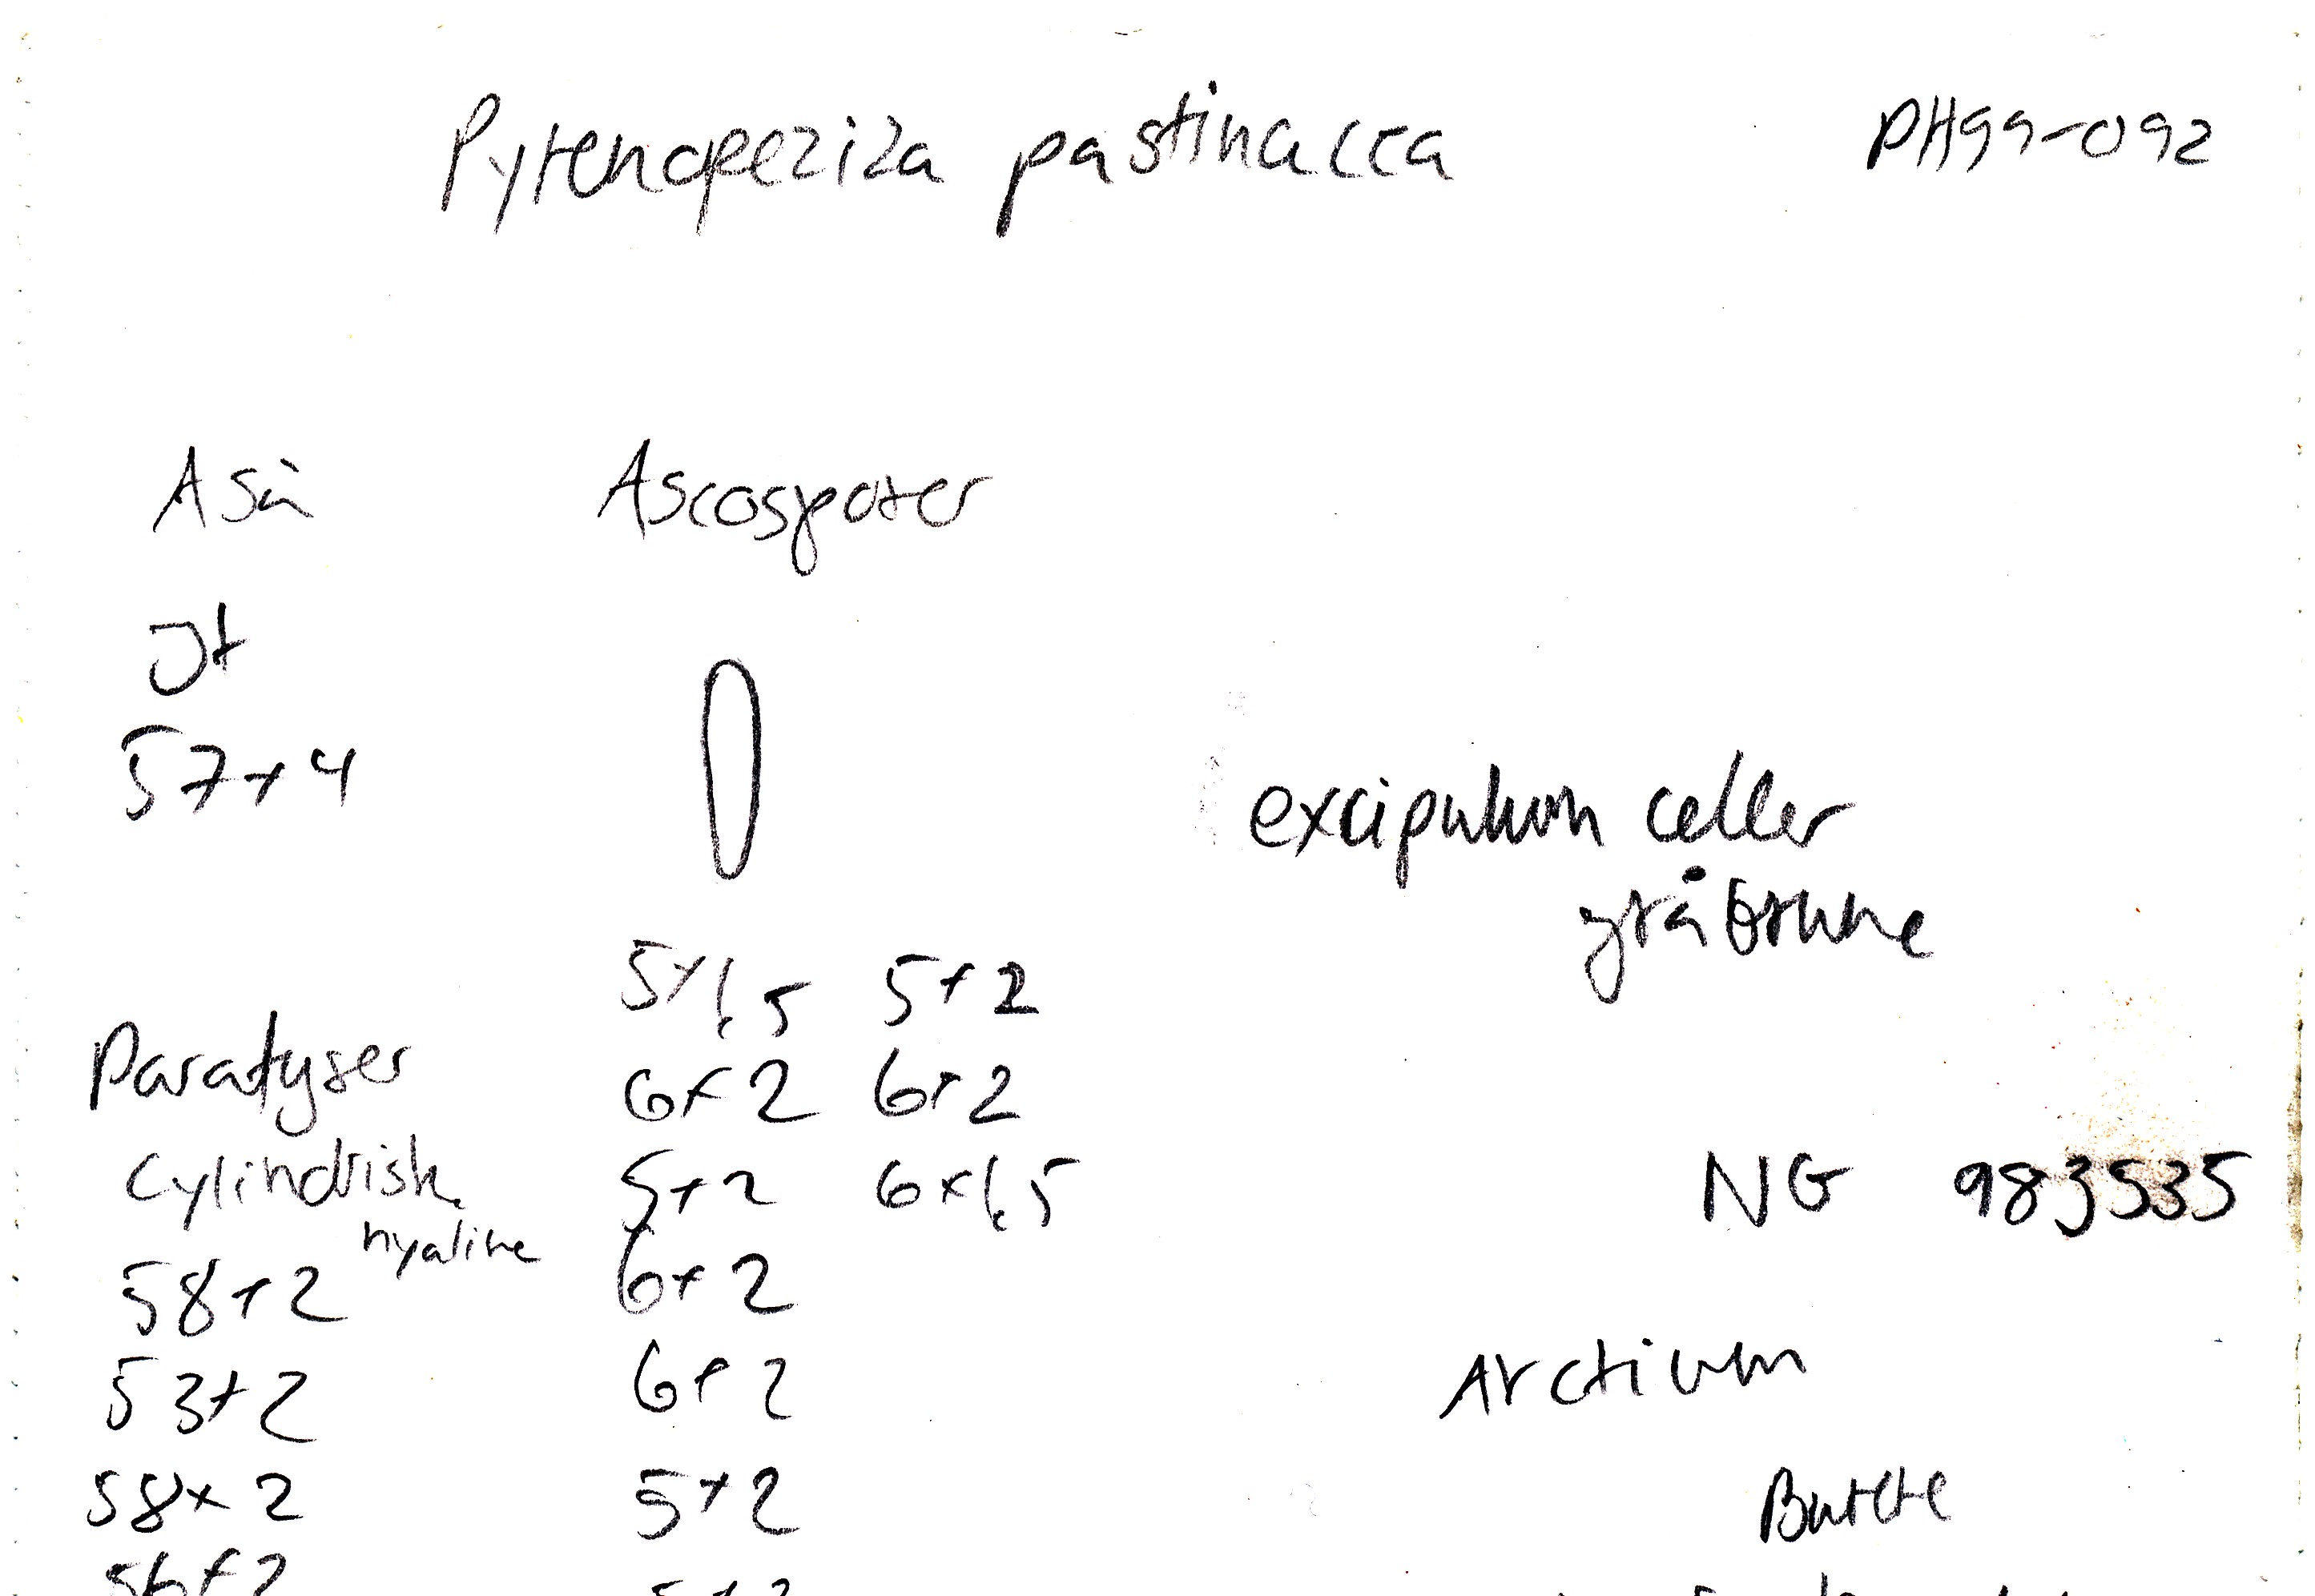 Pyrenopeziza pastinacea PH99-092
Asci Ascosporer
J+
57x4
excipulum celler
gråbrune
5x1.5 5x2
Parafyser 6x2 6x2
cylindrisk 5x2 6x1.5
hyaline
NG 983535
58x2 6x2
53x2 6x2
Arctium
58x2 5x2
Burre
56x2